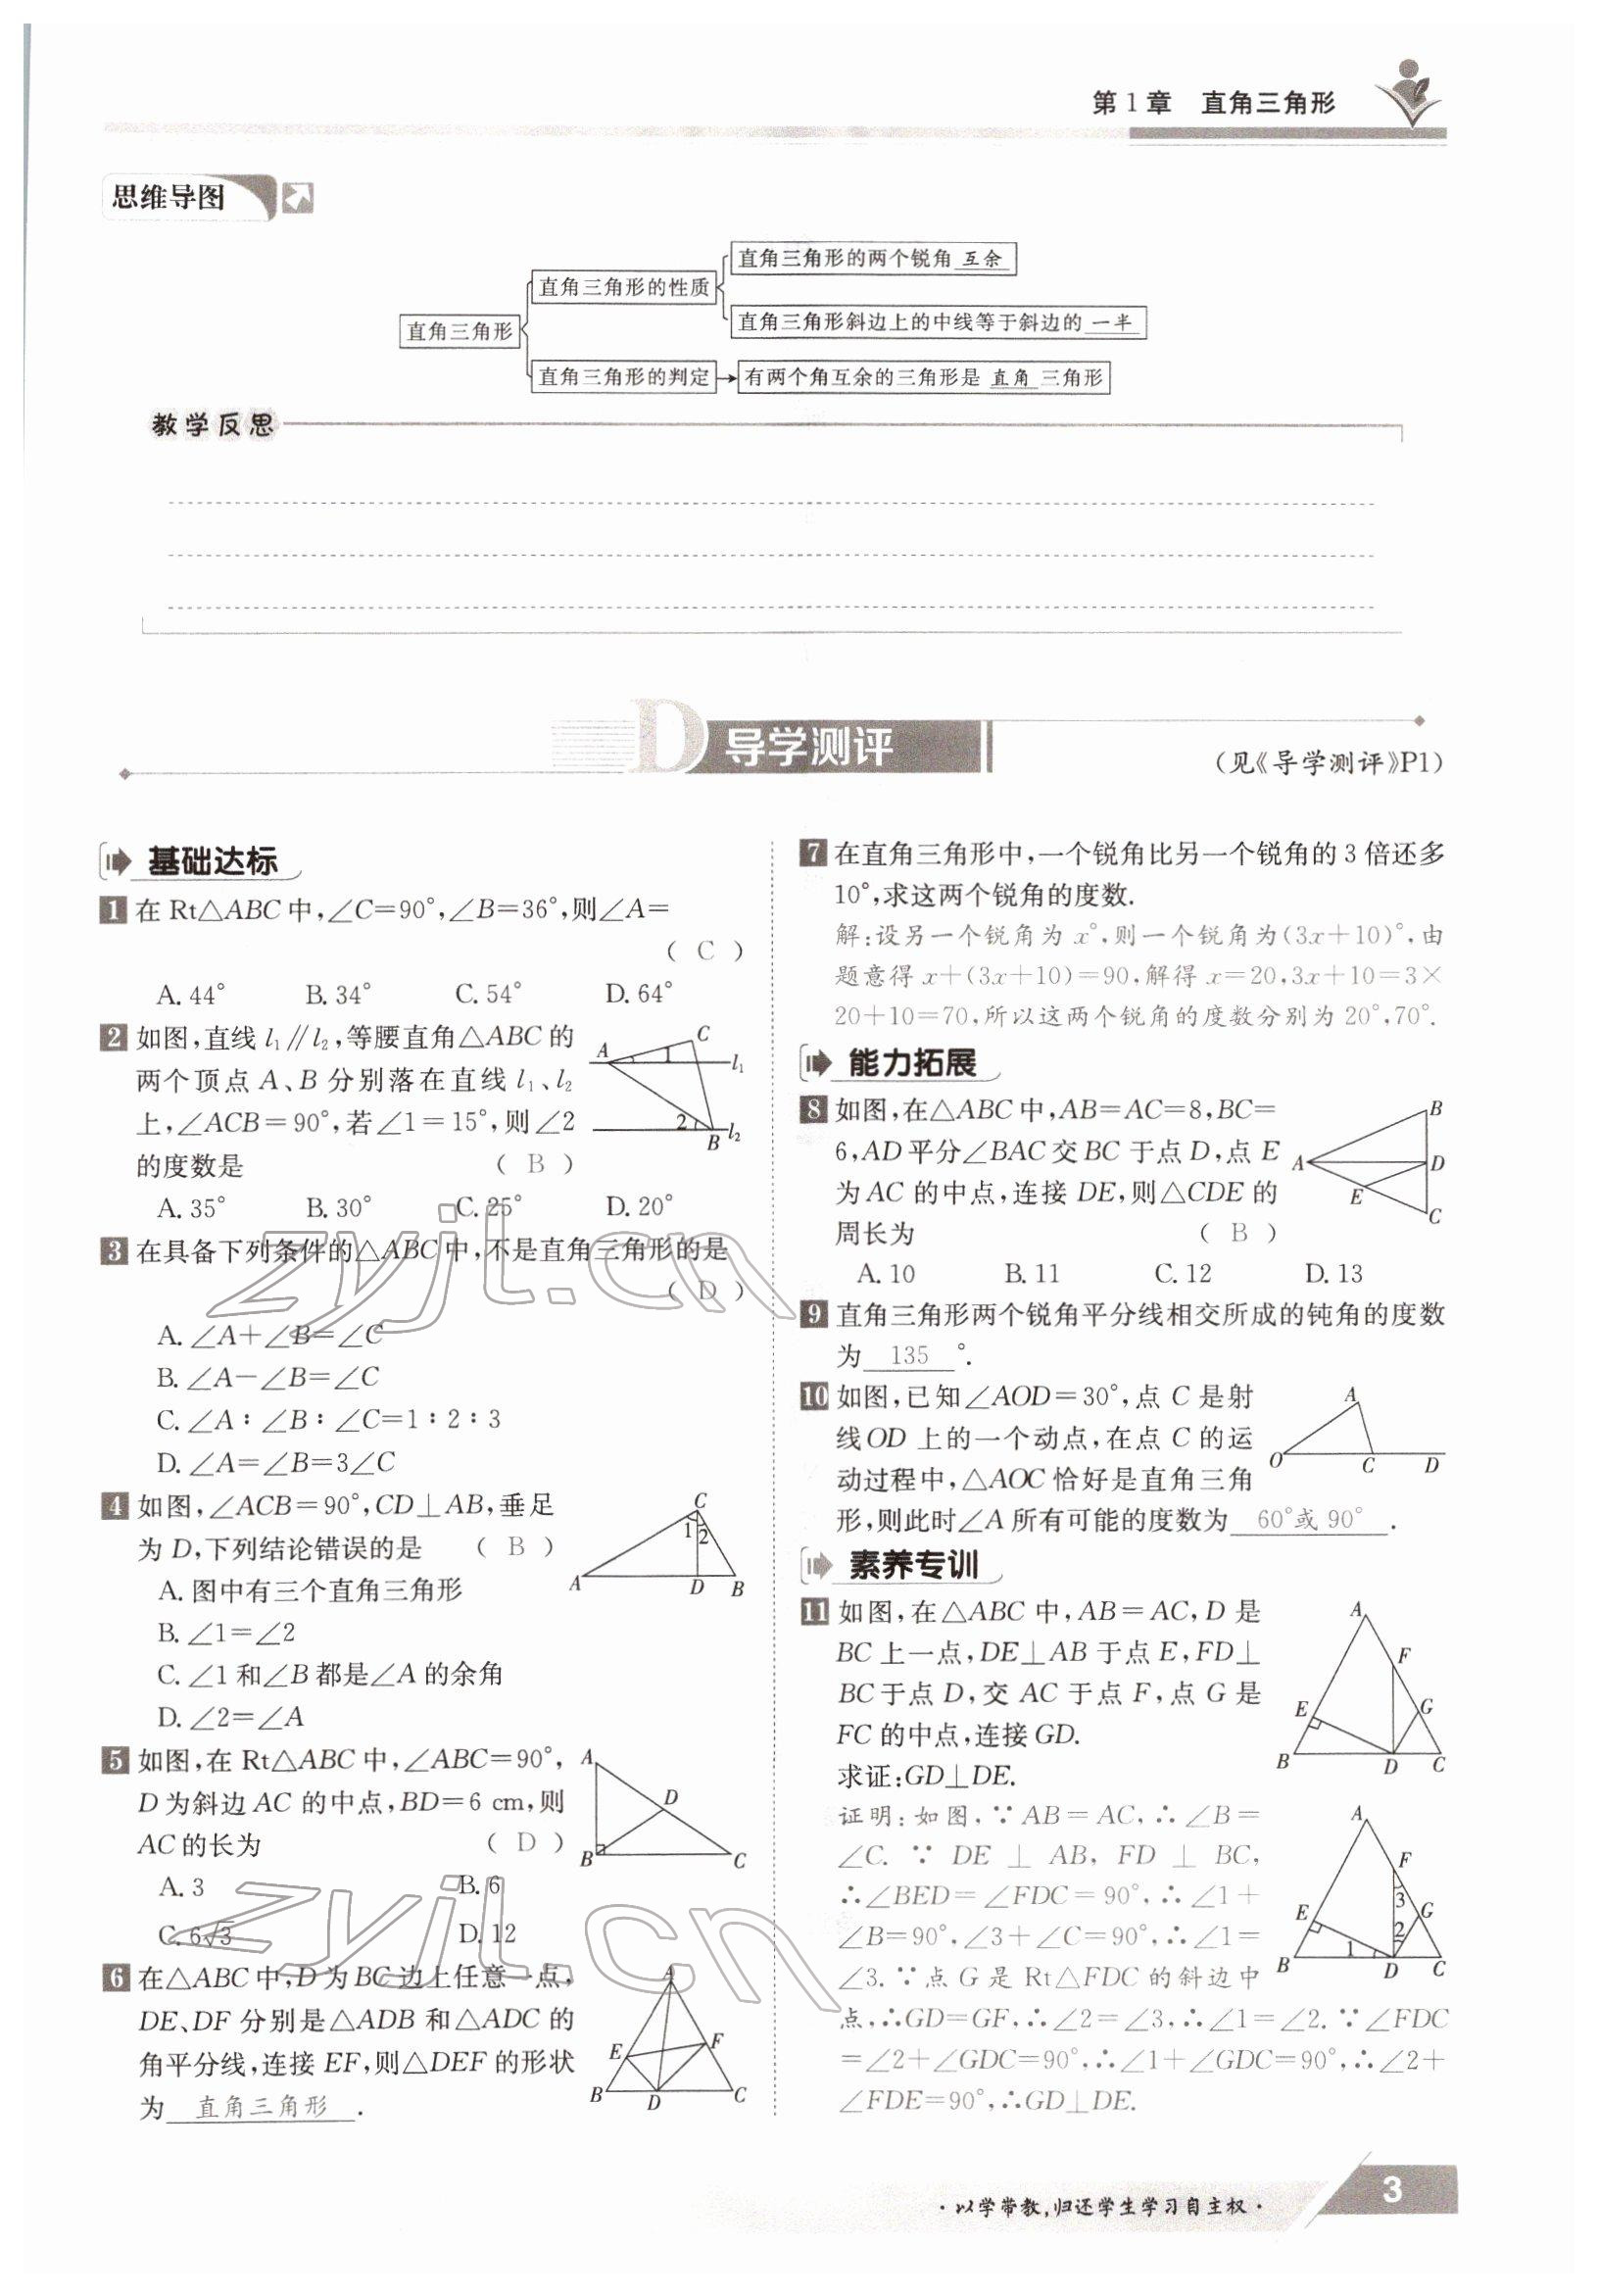 第1章 直角三角形
思维导图
直角三角形的两个锐角 互余
直角三角形的性质
直角三角形斜边上的中线等于斜边的 一半
直角三角形
直角三角形的判定 → 有两个角互余的三角形是 直角 三角形
教学反思
D 导学测评
(见《导学测评》P1)
基础达标
1 在 Rt△ABC 中,∠C=90°,∠B=36°,则∠A=
( C )
A. 44° B. 34° C. 54° D. 64°
2 如图,直线 l₁∥l₂,等腰直角△ABC 的
两个顶点 A、B 分别落在直线 l₁、l₂
上,∠ACB=90°,若∠1=15°,则∠2
的度数是 ( B )
A C 1 l₁ 2 B l₂
A. 35° B. 30° C. 25° D. 20°
3 在具备下列条件的△ABC 中,不是直角三角形的是
( D )
A. ∠A+∠B=∠C
B. ∠A-∠B=∠C
C. ∠A∶∠B∶∠C=1∶2∶3
D. ∠A=∠B=3∠C
4 如图,∠ACB=90°,CD⊥AB,垂足
为 D,下列结论错误的是 ( B )
C 1 2 A D B
A. 图中有三个直角三角形
B. ∠1=∠2
C. ∠1 和∠B 都是∠A 的余角
D. ∠2=∠A
5 如图,在 Rt△ABC 中,∠ABC=90°,
D 为斜边 AC 的中点,BD=6 cm,则
AC 的长为 ( D )
A D B C
A. 3 B. 6
C. 6√3 D. 12
6 在△ABC 中,D 为 BC 边上任意一点,
DE、DF 分别是△ADB 和△ADC 的
角平分线,连接 EF,则△DEF 的形状
为 直角三角形 .
A E F B D C
7 在直角三角形中,一个锐角比另一个锐角的 3 倍还多
10°,求这两个锐角的度数.
解:设另一个锐角为 x°,则一个锐角为(3x+10)°,由
题意得 x+(3x+10)=90,解得 x=20,3x+10=3×
20+10=70,所以这两个锐角的度数分别为 20°,70°.
能力拓展
8 如图,在△ABC 中,AB=AC=8,BC=
6,AD 平分∠BAC 交 BC 于点 D,点 E
为 AC 的中点,连接 DE,则△CDE 的
周长为 ( B )
B A D E C
A. 10 B. 11 C. 12 D. 13
9 直角三角形两个锐角平分线相交所成的钝角的度数
为 135 °.
10 如图,已知∠AOD=30°,点 C 是射
线 OD 上的一个动点,在点 C 的运
动过程中,△AOC 恰好是直角三角
形,则此时∠A 所有可能的度数为 60°或 90° .
A O C D
素养专训
11 如图,在△ABC 中,AB=AC,D 是
BC 上一点,DE⊥AB 于点 E,FD⊥
BC 于点 D,交 AC 于点 F,点 G 是
FC 的中点,连接 GD.
求证:GD⊥DE.
A F E G B D C
证明:如图,∵AB=AC,∴∠B=
∠C. ∵ DE ⊥ AB, FD ⊥ BC,
∴∠BED=∠FDC=90°,∴∠1+
∠B=90°,∠3+∠C=90°,∴∠1=
∠3. ∵点 G 是 Rt△FDC 的斜边中
点,∴GD=GF,∴∠2=∠3,∴∠1=∠2. ∵∠FDC
=∠2+∠GDC=90°,∴∠1+∠GDC=90°,∴∠2+
∠FDE=90°,∴GD⊥DE.
A F 3 E G 2 1 B D C
zyjl.cn
zyjl.cn
·以学带教,归还学生学习自主权·
3